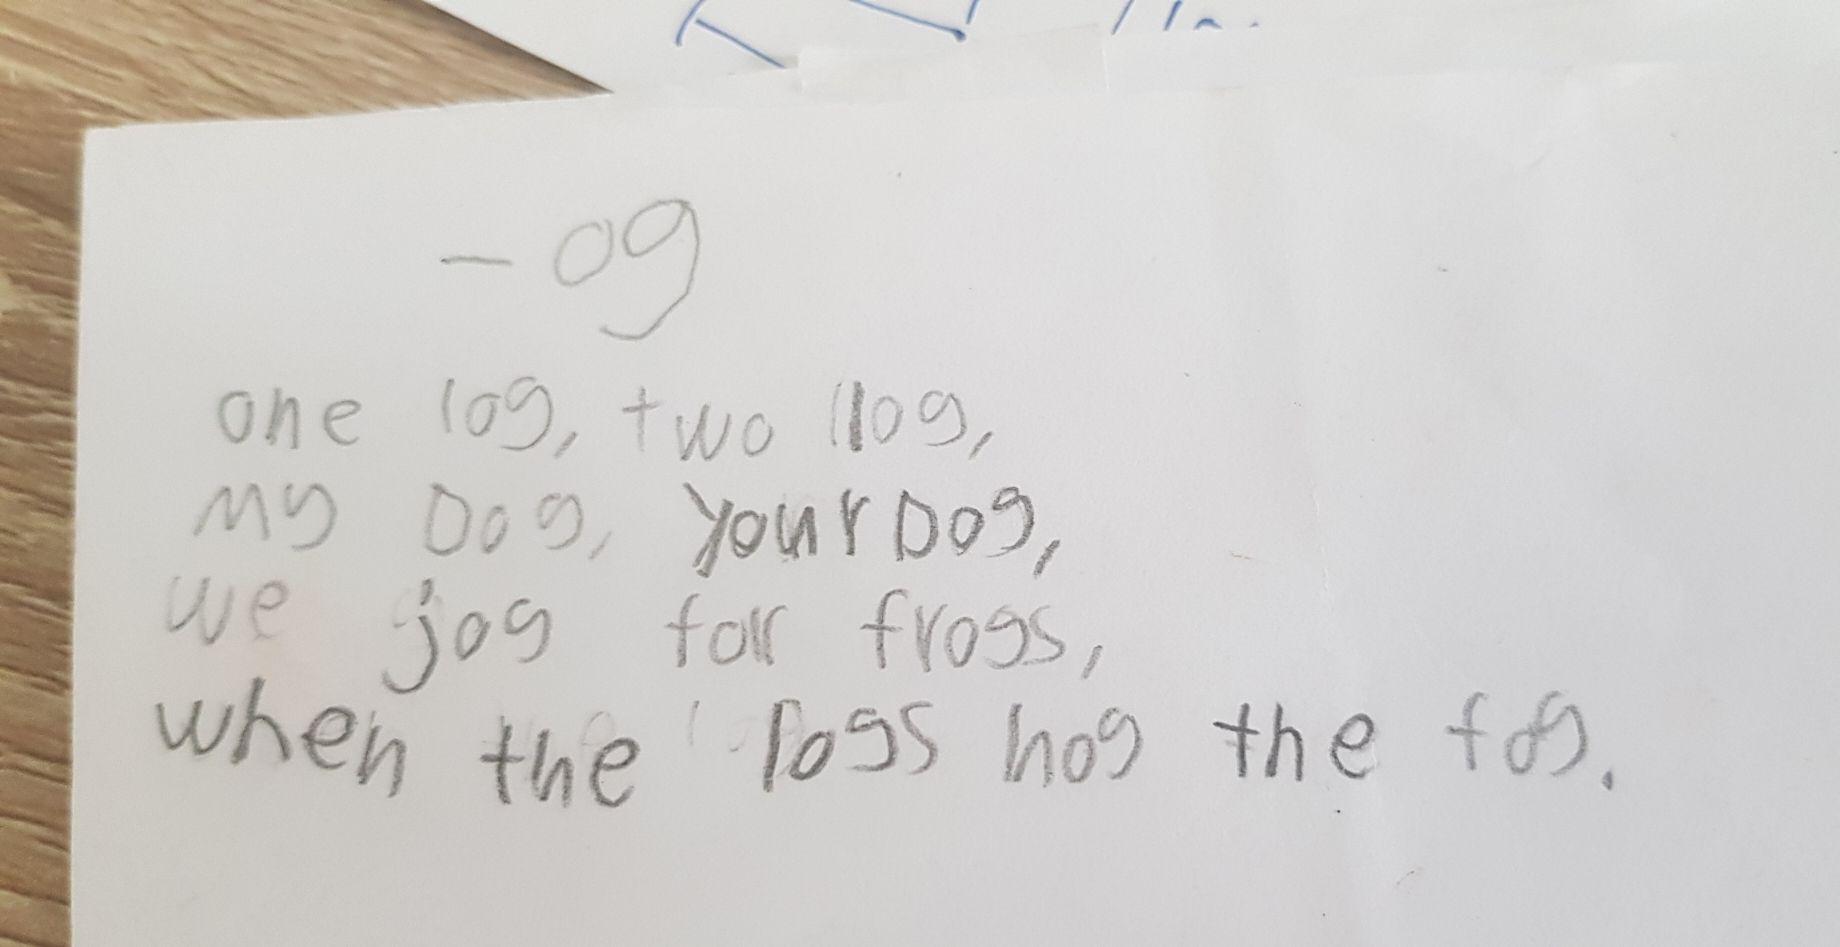 -og
one log, two llog,
my Dog, your Dog,
we jog for frogs,
when the logs hog the fog.